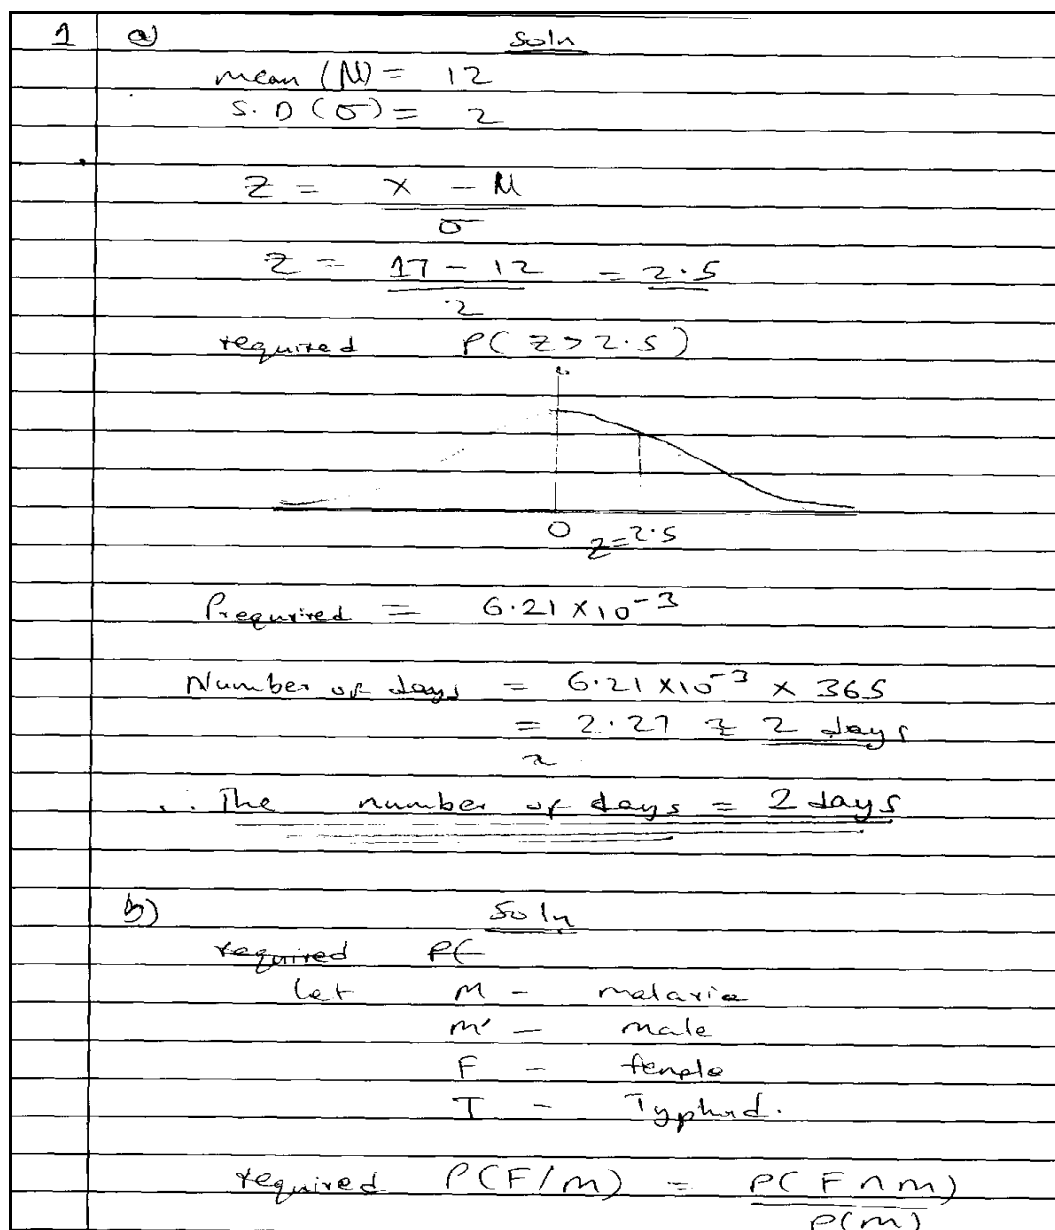 1 a) Soln
mean (M) = 12
S.D (σ) = 2
Z = X - M
σ
Z = 17 - 12 = 2.5
2
required P( Z > 2.5 )
0 Z=2.5
Prequired = 6.21 × 10⁻³
Number of days = 6.21 × 10⁻³ × 365
= 2.27 ≈ 2 days
≈
∴ The number of days = 2 days
b) Soln
required P(
let M - malaria
M' - male
F - female
T - Typhod.
required P(F/M) = P( F ∩ M)
P(M)